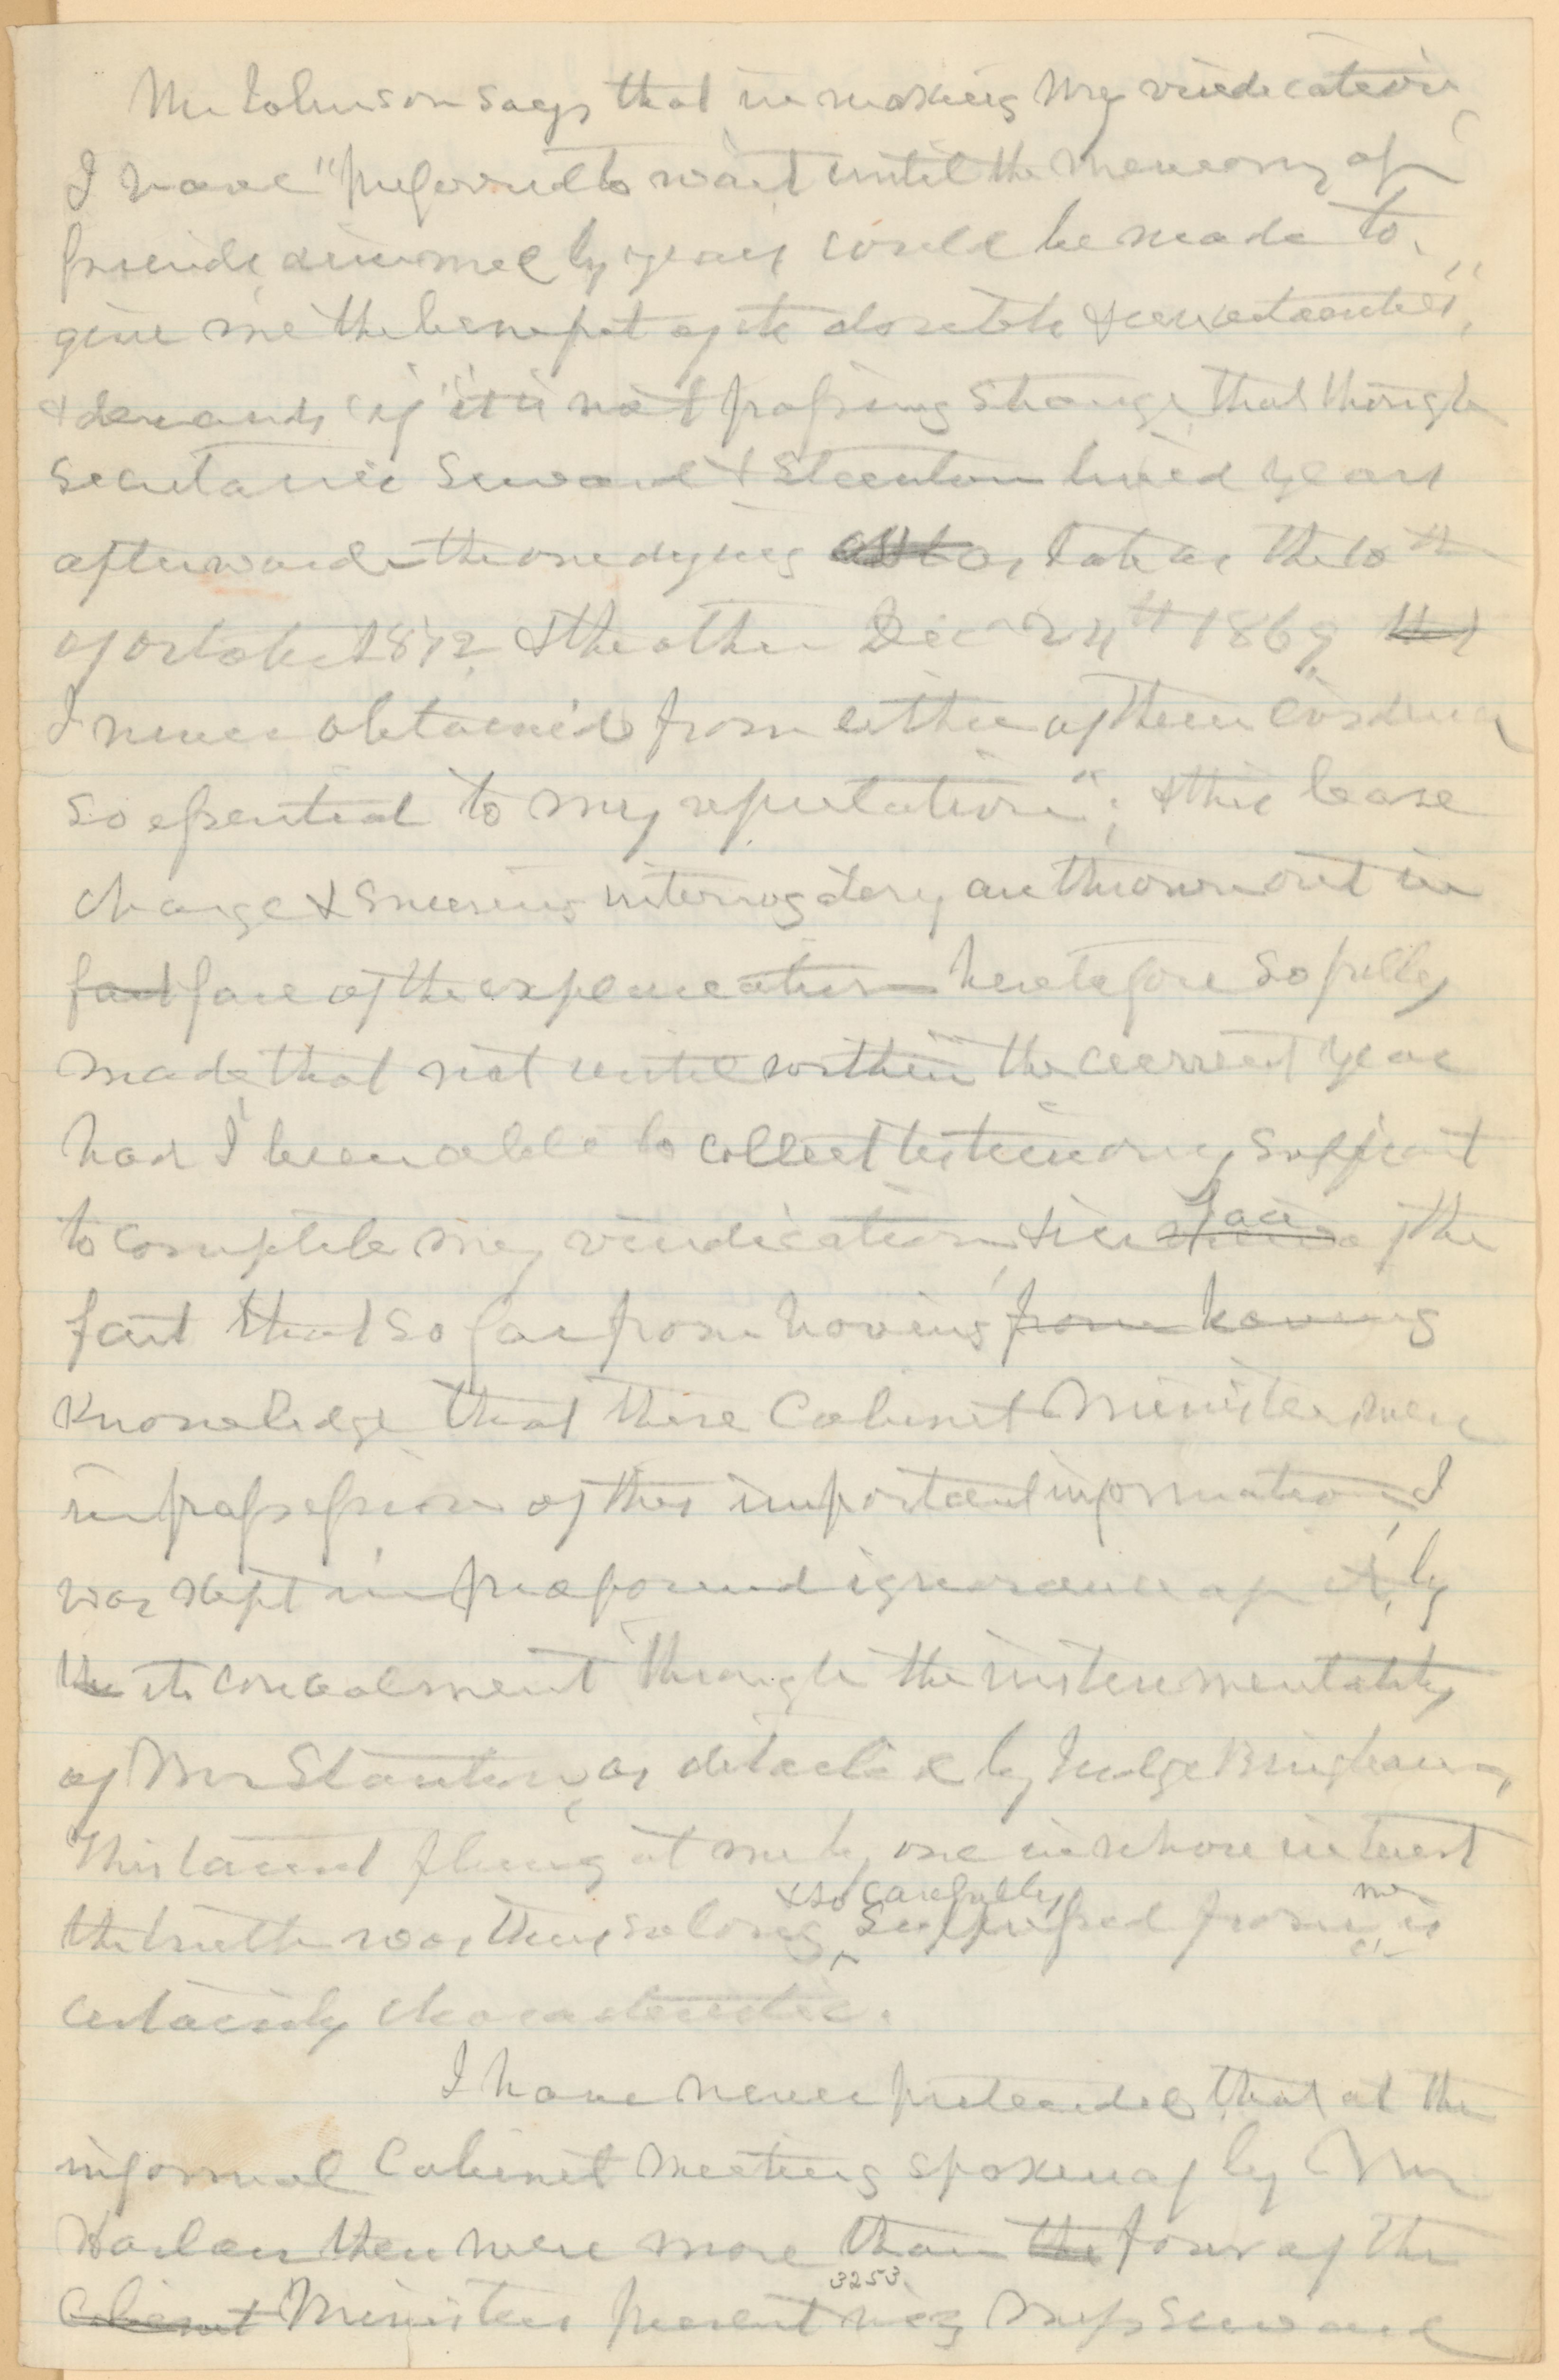 Mr Johnson says that in making my vindication,
I have "preferred to wait until the memory of
friends dimmed by years could be made to
give me the benefit of its doubts & uncertainties",
& demands if "it is not passing strange, that though
Secretaries Seward & Stanton lived years
afterwards the one dying as late as the 10th
of October 1872, & the other Dec 24th 1869, that
I never obtained from either of them evidence
so essential to my reputation"; & this base
charge & sneering interrogatory are thrown out in
fact face of the explanation heretofore so fully
made, that not until within the current year
had I been able to collect testimony sufficient
to complete my vindication, & in face of the
fact that so far from having from having
knowledge that these Cabinet Ministers were
in possession of this important information, I
was kept in profound ignorance of it, by
the its concealment through the instrumentality
of Mr Stanton, as detailed by Judge Bingham,
This taunt flung at me by one in whose interest
& so carefully me
the truth was thus so long suppressed from is
certainly characteristic.
I have never pretended that at the
informal Cabinet meeting spoken of by Mr
Harlan there were more than the four of the
3253.
Cabinet Ministers present viz Messrs Seward